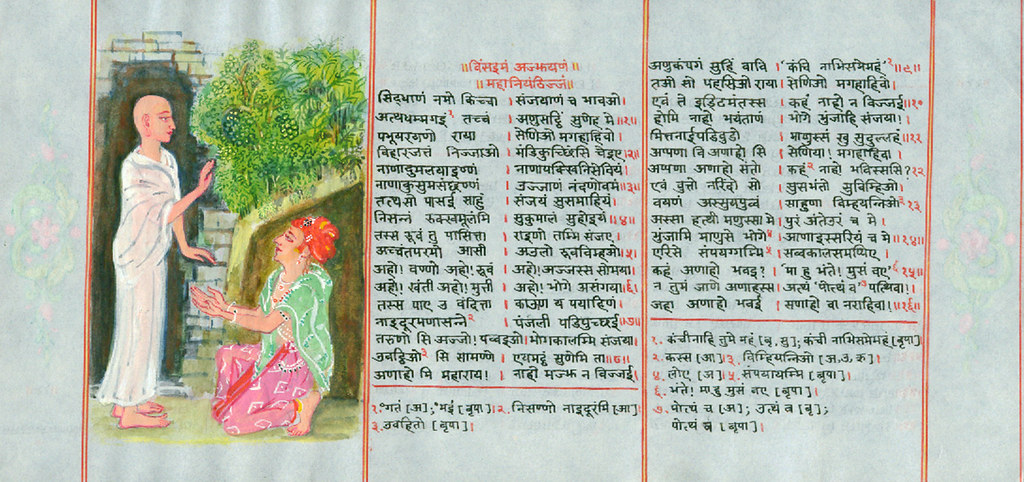 ॥विंसइमं अज्झयणं॥
॥महानियंठिज्जं॥
सिद्धाणं नमो किच्चा । संजयाणं च भावओ।
अत्थधम्मगइं१ तच्चं । अणुसट्ठिं सुणेह मे॥१॥
पभूयरयणो राया । सेणिओ मगहाहिवो।
विहारजत्तं निज्जाओ । मंडिकुच्छिंसि चेइए॥२॥
नाणादुमलयाइण्णं । नाणापक्खिनिसेवियं।
नाणाकुसुमसंछण्णं । उज्जाणं नंदणोवमं॥३॥
तत्थ सो पासई साहुं । संजयं सुसमाहियं।
निसन्नं रुक्खमूलम्मि । सुकुमालं सुहोइयं॥४॥
तस्स रूवं तु पासित्ता । राइणो तम्मि संजए।
अच्चंतपरमो आसी । अउलो रूवविम्हओ॥५॥
अहो! वण्णो अहो! रूवं । अहो! अज्जस्स सोमया।
अहो! खंती अहो! मुत्ती । अहो! भोगे असंगया॥६॥
तस्स पाए उ वंदित्ता । काऊण य पयाहिणं।
नाइदूरमणासन्ने२ । पंजली पडिपुच्छई॥७॥
तरुणो सि अज्जो! पव्वइओ। भोगकालम्मि संजया।
उवट्ठिओ३ सि सामण्णे । एयमट्ठं सुणेमि ता॥८॥
अणाहो मि महाराय! । नाहो मज्झ न विज्जई।
१.°गतं [अ]; °मइं [बृपा]। २. निसण्णो नाइदूरंमि [आ]।
३. उवहितो [बृपा]।
अणुकंपगं सुहिं वावि । कंचि नाभिसमेमहं१॥९॥
तओ सो पहसिओ राया। सेणिओ मगहाहिवो।
एवं ते इड्ढिमंतस्स । कहं नाहो न विज्जई॥१०॥
होमि नाहो भयंताणं । भोगे भुंजाहि संजया!।
मित्तनाईपरिवुडो । माणुस्सं खु सुदुल्लहं॥११॥
अप्पणा वि अणाहो सि । सेणिया! मगहाहिवा।
अप्पणा अणाहो संतो । कहं२ नाहो भविस्ससि?१२
एवं वुत्तो नरिंदो सो । सुसंभंतो सुविम्हिओ।
वयणं अस्सुयपुव्वं । साहुणा विम्हयन्निओ३१३
अस्सा हत्थी मणुस्सा मे । पुरं अंतेउरं च मे ।
भुंजामि माणुसे भोगे४ । आणाइस्सरियं च मे॥१४॥
एरिसे संपयग्गम्मि५ । सव्वकामसमप्पिए।
कहं अणाहो भवइ? । मा हु भंते! मुसं वए६॥१५॥
न तुमं जाणे अणाहस्स । अत्थं पोत्थं व७ पत्थिवा!।
जहा अणाहो भवई । सणाहो वा नराहिवा!॥१६॥
१. कंचीनाहि तुमे महं [बृ, सु]; कंची नाभिसमेमहं [बृपा]
२. कस्स [आ]। ३. विम्हियन्निओ [अ, उ, ऋ]।
४. लोए [अ]। ५. संपयायम्मि [बृपा]।
६. भंते! मा हु मुसं वए [बृपा]।
७. पोत्थं च [अ]; उत्थं व [बृपा];
पोत्थं व [बृपा]।